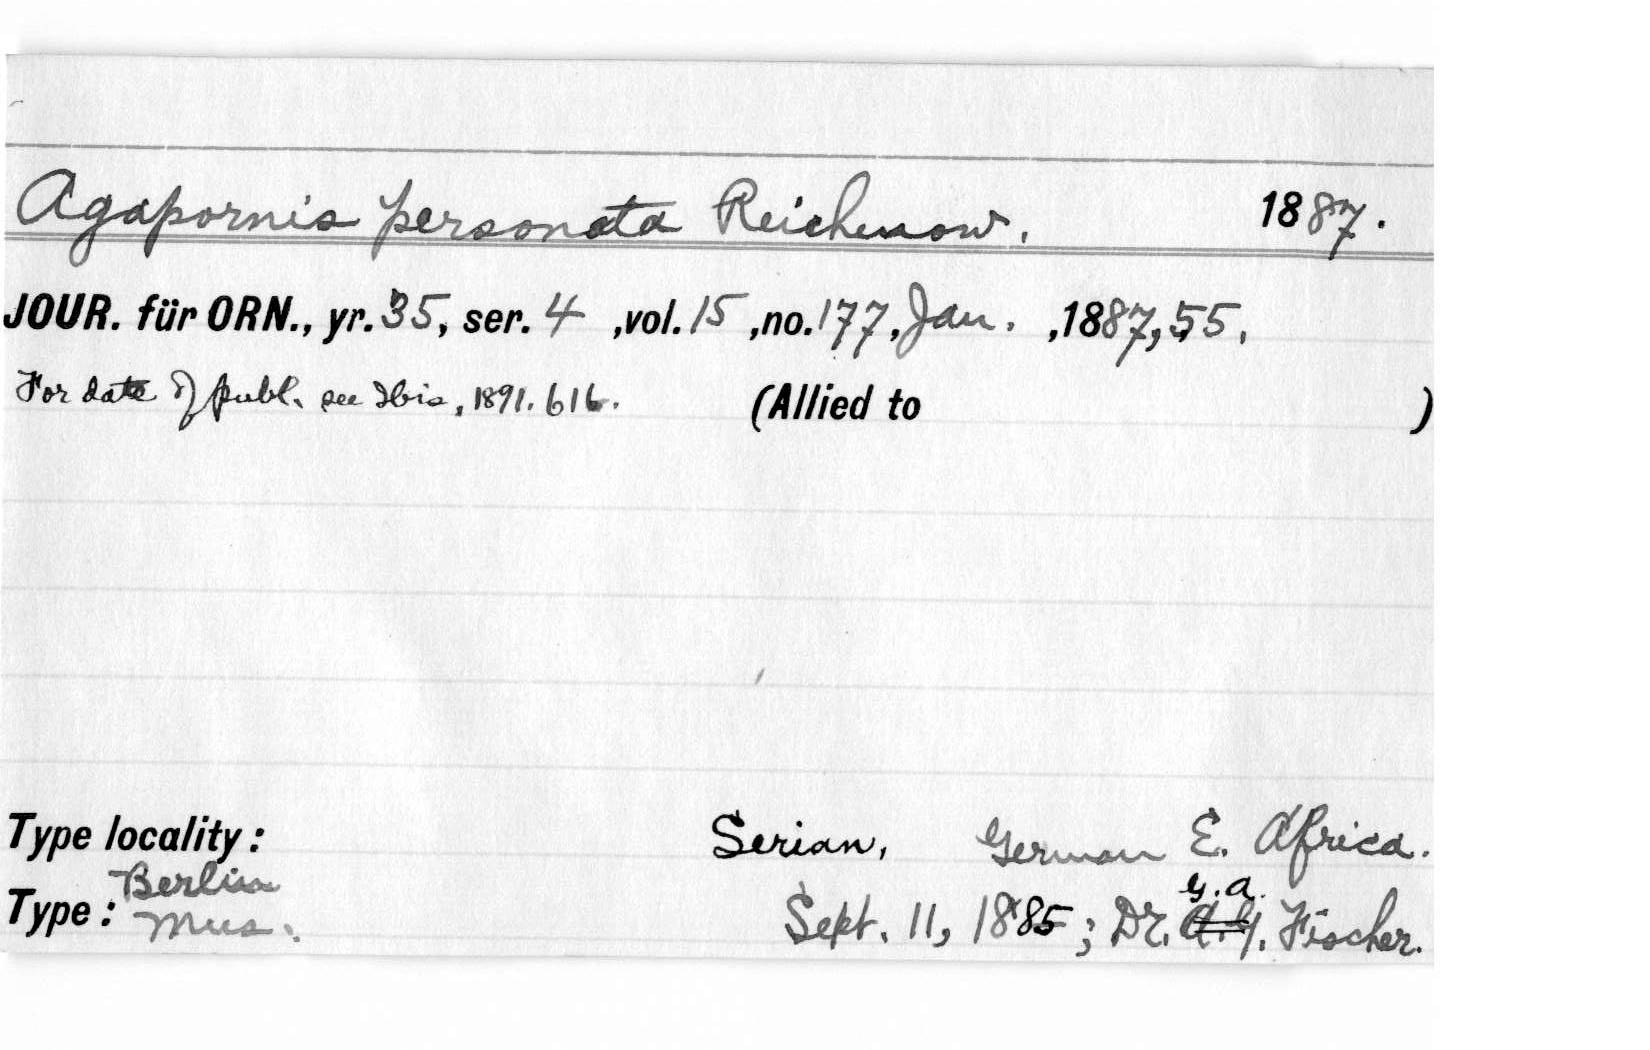 Agapornis personata Reichenow. 1887.
JOUR. für ORN., yr. 35, ser. 4 ,vol. 15 ,no. 177, Jan. ,1887, 55.
For date of publ. see Ibis, 1891. 616. (Allied to )
Type locality: Serian, German E. Africa.
Berlin G.A.
Type: Mus. Sept. 11, 1885; Dr. A.G. Fischer.